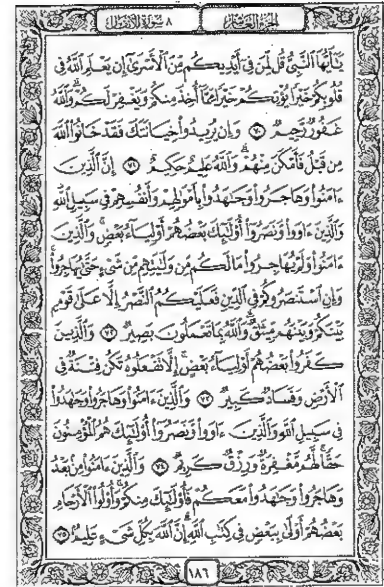 الجزء العاشر ٨ سورة الأنفال
يَٰٓأَيُّهَا ٱلنَّبِىُّ قُل لِّمَن فِىٓ أَيْدِيكُم مِّنَ ٱلْأَسْرَىٰٓ إِن يَعْلَمِ ٱللَّهُ فِى
قُلُوبِكُمْ خَيْرًا يُؤْتِكُمْ خَيْرًا مِّمَّآ أُخِذَ مِنكُمْ وَيَغْفِرْ لَكُمْ وَٱللَّهُ
غَفُورٌ رَّحِيمٌ ٧٠ وَإِن يُرِيدُوا۟ خِيَانَتَكَ فَقَدْ خَانُوا۟ ٱللَّهَ
مِن قَبْلُ فَأَمْكَنَ مِنْهُمْ وَٱللَّهُ عَلِيمٌ حَكِيمٌ ٧١ إِنَّ ٱلَّذِينَ
ءَامَنُوا۟ وَهَاجَرُوا۟ وَجَٰهَدُوا۟ بِأَمْوَٰلِهِمْ وَأَنفُسِهِمْ فِى سَبِيلِ ٱللَّهِ
وَٱلَّذِينَ ءَاوَوا۟ وَّنَصَرُوٓا۟ أُو۟لَٰٓئِكَ بَعْضُهُمْ أَوْلِيَآءُ بَعْضٍ وَٱلَّذِينَ
ءَامَنُوا۟ وَلَمْ يُهَاجِرُوا۟ مَا لَكُم مِّن وَلَٰيَتِهِم مِّن شَىْءٍ حَتَّىٰ يُهَاجِرُوا۟
وَإِنِ ٱسْتَنصَرُوكُمْ فِى ٱلدِّينِ فَعَلَيْكُمُ ٱلنَّصْرُ إِلَّا عَلَىٰ قَوْمٍۭ
بَيْنَكُمْ وَبَيْنَهُم مِّيثَٰقٌ وَٱللَّهُ بِمَا تَعْمَلُونَ بَصِيرٌ ٧٢ وَٱلَّذِينَ
كَفَرُوا۟ بَعْضُهُمْ أَوْلِيَآءُ بَعْضٍ إِلَّا تَفْعَلُوهُ تَكُن فِتْنَةٌ فِى
ٱلْأَرْضِ وَفَسَادٌ كَبِيرٌ ٧٣ وَٱلَّذِينَ ءَامَنُوا۟ وَهَاجَرُوا۟ وَجَٰهَدُوا۟
فِى سَبِيلِ ٱللَّهِ وَٱلَّذِينَ ءَاوَوا۟ وَّنَصَرُوٓا۟ أُو۟لَٰٓئِكَ هُمُ ٱلْمُؤْمِنُونَ
حَقًّا لَّهُم مَّغْفِرَةٌ وَرِزْقٌ كَرِيمٌ ٧٤ وَٱلَّذِينَ ءَامَنُوا۟ مِنۢ بَعْدُ
وَهَاجَرُوا۟ وَجَٰهَدُوا۟ مَعَكُمْ فَأُو۟لَٰٓئِكَ مِنكُمْ وَأُو۟لُوا۟ ٱلْأَرْحَامِ
بَعْضُهُمْ أَوْلَىٰ بِبَعْضٍ فِى كِتَٰبِ ٱللَّهِ إِنَّ ٱللَّهَ بِكُلِّ شَىْءٍ عَلِيمٌۢ ٧٥
١٨٦